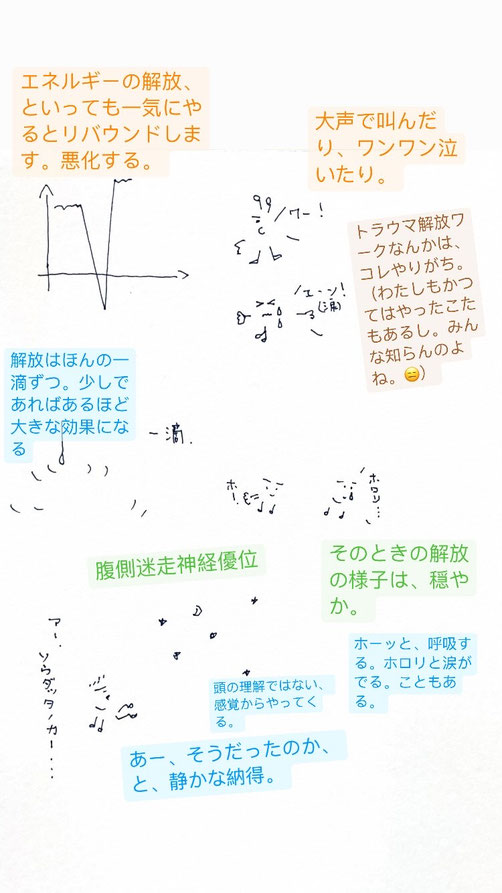 エネルギーの解放、
といっても一気にや
るとリバウンドしま
す。悪化する。
大声で叫んだ
り、ワンワン泣
いたり。
ワー!
トラウマ解放ワ
ークなんかは、
コレやりがち。
(わたしもかつ
てはやったこた
もあるし。みん
な知らんのよ
ね。😑)
エーン!
(涙)
解放はほんの一
滴ずつ。少しで
あればあるほど
大きな効果にな
る
一滴.
ホー!
ホロリ...
腹側迷走神経優位
そのときの解放
の様子は、穏や
か。
ホーッと、呼吸す
る。ホロリと涙が
でる。こともあ
る。
アー、
ソウダッタノカー....
頭の理解ではない、
感覚からやってく
る。
あー、そうだったのか、
と、静かな納得。